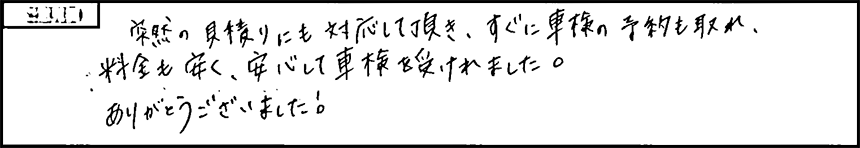 突然の見積りにも対応して頂き、すぐに車検の予約も取れ、
料金も安く、安心して車検を受けれました。
ありがとうございました!